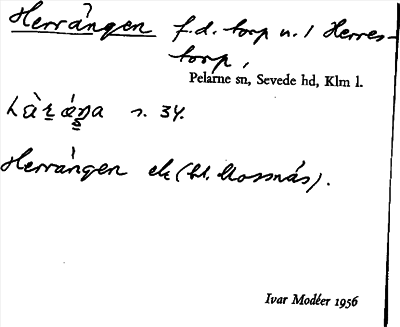 Herrängen f.d. torp u. 1 Herres-
torp,
Pelarne sn, Sevede hd, Klm l.
s. 34.
Herrängen ek (bl. Mossnäs).
Ivar Modéer 1956